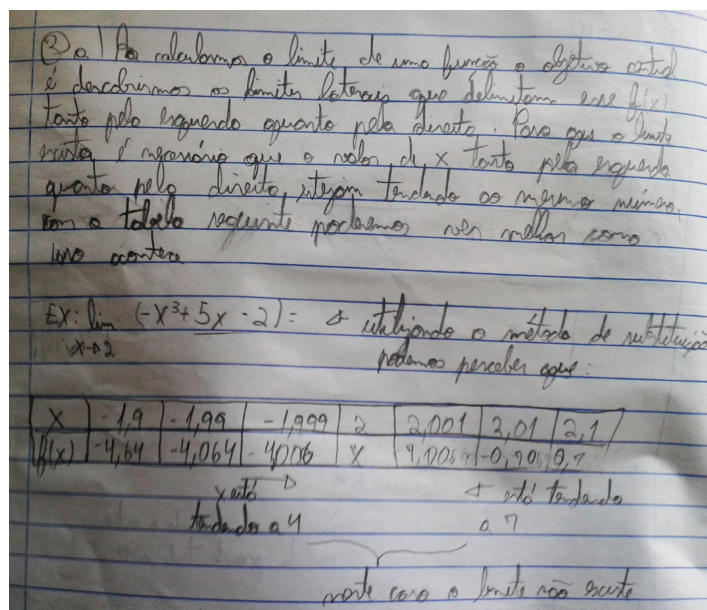 ② a) Ao calcularmos o limite de uma função o objetivo central
é descobrirmos os limites laterais que delimitam esse f(x)
tanto pela esquerda quanto pela direita. Para que o limite
exista é necessário que o valor de x tanto pela esquerda
quanto pela direita, estejam tendendo ao mesmo número,
com a tabela seguinte poderemos ver melhor como
isso acontece
EX: lim (-x³+5x-2)= utilizando o método de substituição
x→2 podemos perceber que:
x -1,9 -1,99 -1,999 2 2,001 2,01 2,1
f(x) -4,64 -4,064 -4006 x
x está está tendendo
tendendo a 4 a 7
neste caso o limite não existe